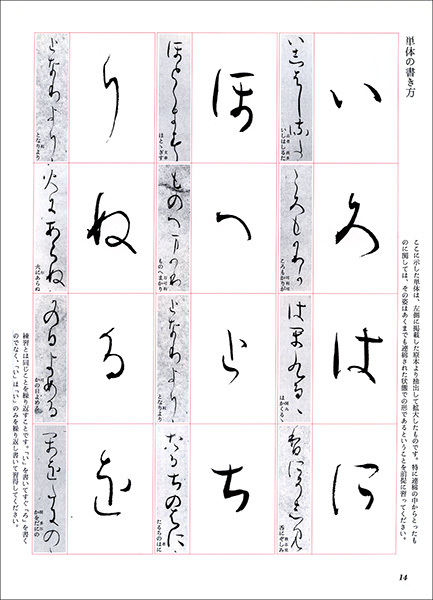 単体の書き方
ここに示した単体は、左側に掲載した原本より抽出して拡大したものです。特に連綿の中からとったも
のに関しては、その姿はあくまでも連綿された状態での形であるということを前提に習ってください。
い
ろ
は
に
いしはしるた
ころもかりが
はかくるゝ
香にぞしみ
ほ
へ
と
ち
ほとゝぎす
ものへまかり
となりより
たるちのはに
り
ぬ
る
を
となりより
火にあらね
かの日よめる
かをだにの
練習とは同じことを繰り返すことです。「い」を書いてすぐ「ろ」を書く
のでなく、「い」は「い」のみを繰り返し書いて習得してください。
14